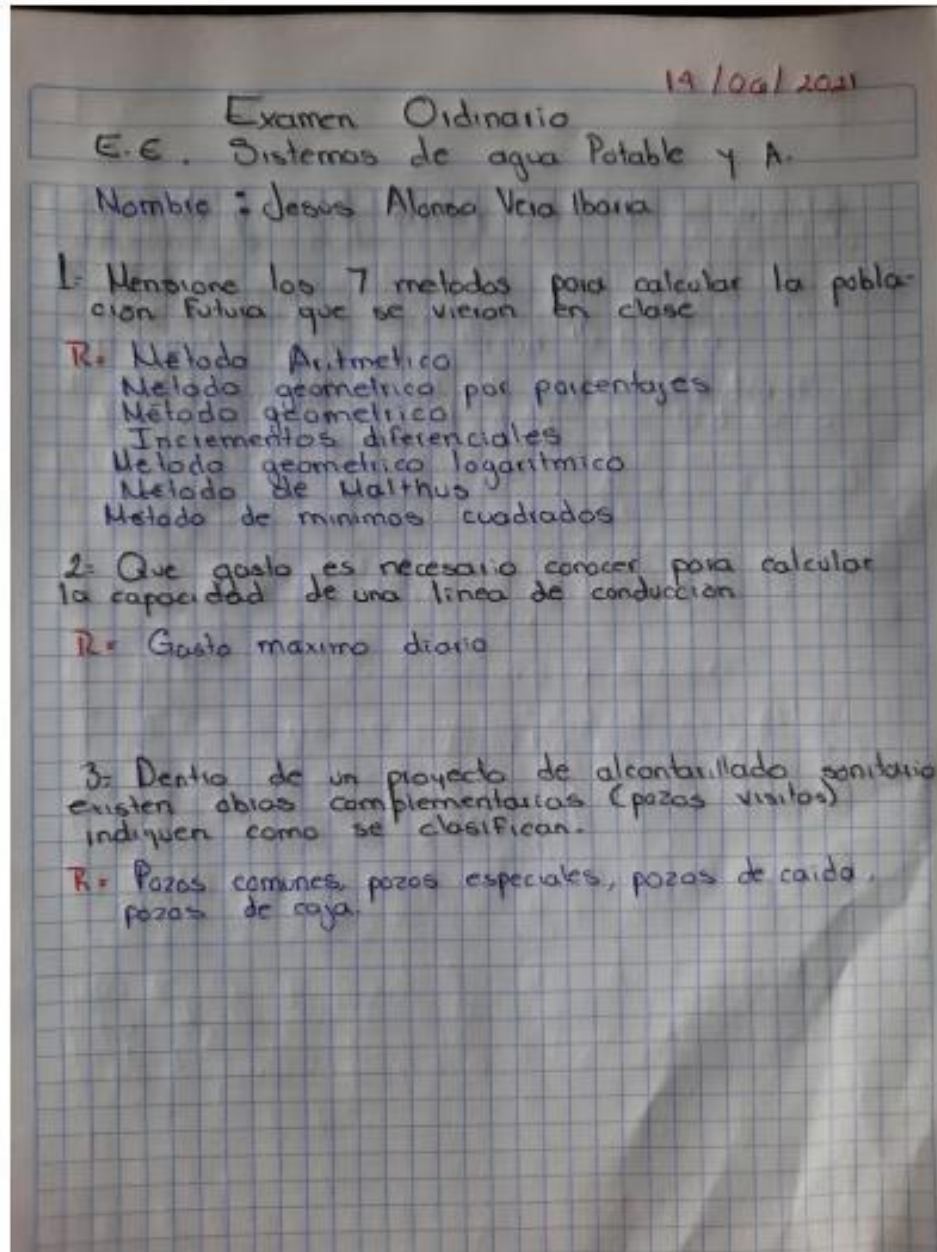 19/06/2021
Examen Ordinario
E.E. Sistemas de agua Potable y A.
Nombre: Jesus Alonso Vera Ibarra
1- Mensione los 7 metodos para calcular la pobla-
cion Futura que se vieron en clase
R= Metodo Aritmetico
Metodo geometrico por porcentajes
Método geometrico
Incrementos diferenciales
Metodo geometrico logaritmico
Metodo de Malthus
Metodo de minimos cuadrados
2= Que gasto es necesario conocer para calcular
la capacidad de una linea de conduccion
R= Gasto maximo diario
3= Dentro de un proyecto de alcantarillado sanitario
existen obras complementarias (pozos visitas)
indiquen como se clasifican.
R= Pozos comunes, pozos especiales, pozos de caida,
pozos de caja.